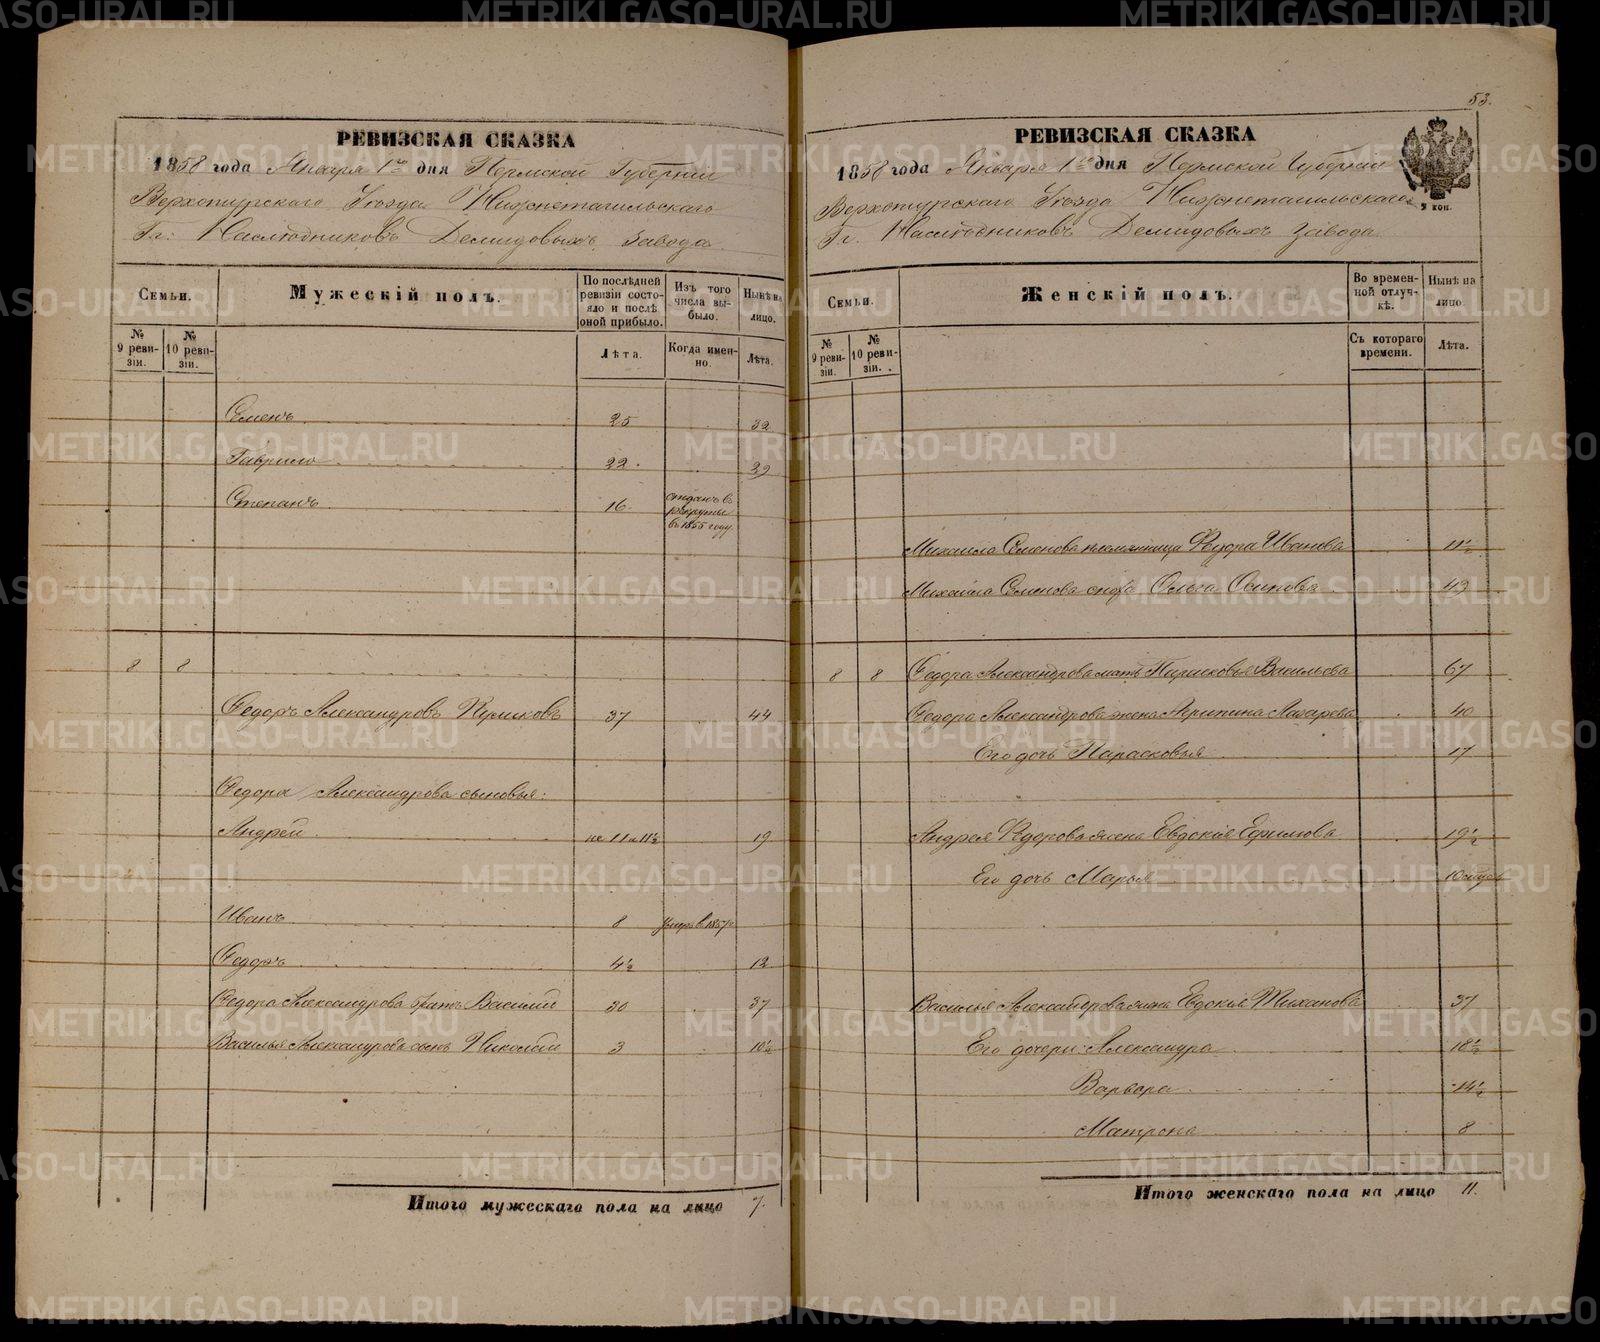 РЕВИЗСКАЯ СКАЗКА
1858 года Января 1го дня Пермской Губернiи
Верхотурскаго Уѣзда Нижнетагильскаго
Гг: Наслѣдниковъ Демидовыхъ завода
Семьи.
Мужескій полъ.
По послѣдней ревизіи состояло и послѣ оной прибыло.
Изъ того числа выбыло.
Нынѣ на лицо.
№ 9 ревизіи.
№ 10 ревизіи.
Лѣта.
Когда именно.
Лѣта.
Семенъ 25 32
Гаврило 22 29
Степанъ 16 отданъ въ рекруты въ 1855 году
8 8
Федоръ Александровъ 37 44
Федора Александрова сыновья:
Андрей 11 19
Иванъ 8 умеръ 1857
Федоръ 4½ 12
Федора Александрова братъ Василій 30 37
Василья Александрова сынъ Николай 3 10½
Итого мужескаго пола на лицо 7.
53.
РЕВИЗСКАЯ СКАЗКА
1858 года Января 1го дня Пермской Губернiи
Верхотурскаго Уѣзда Нижнетагильскаго
Гг. Наслѣдниковъ Демидовыхъ завода
Семьи.
Женскій полъ.
Во временной отлучкѣ.
Нынѣ на лицо.
№ 9 ревизіи.
№ 10 ревизіи.
Съ котораго времени.
Лѣта.
Михаила Семенова племянница Ѳедора Иванова 11½
Михаила Семенова сноха Ольга Осипова 49
8 8 Федора Александрова мать Парасковья Васильева 67
Федора Александрова жена Агрипина Лазарева 40
Его дочь Парасковья 17
Андрея Ѳедорова жена Евдокія Ефимова 19½
Его дочь Марья
Василья Александрова жена Евдокія Тиханова 37
Его дочери: Александра 18½
Варвара 14½
Матрона 8
Итого женскаго пола на лицо 11.
METRIKI.GASO-URAL.RU